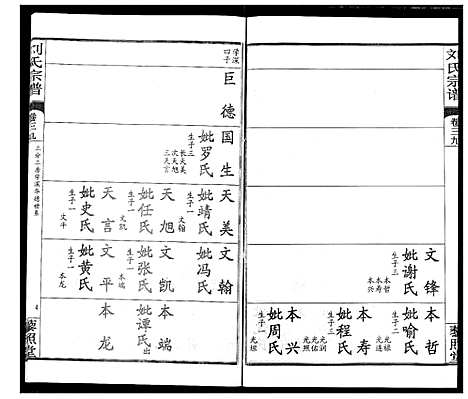 刘氏宗谱
卷三九
文锋
妣谢氏
生子三
本哲
本寿
本兴
本哲
妣喻氏
生子二
光禄
光莲
本寿
妣程氏
生子三
光训
光佑
光照
本兴
妣周氏
生子一
光坦
藜照堂
字深
四子
巨德
国生
妣罗氏
生子三
长天美
次天旭
三天言
天美
妣靖氏
生子一
文翰
天旭
妣任氏
生子一
文凯
天言
妣史氏
生子一
文平
文翰
妣冯氏
文凯
妣张氏
生子一
本端
文平
妣黄氏
生子一
本龙
本端
妣谭氏出
本龙
刘氏宗谱
卷三九
4
藜照堂